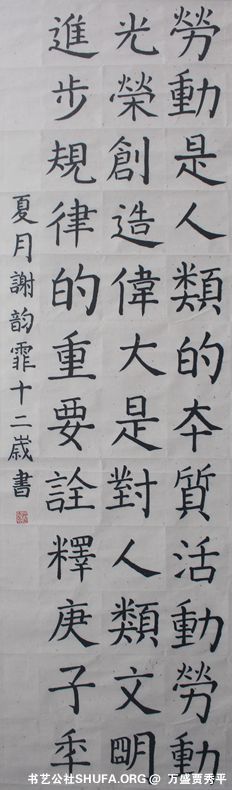 勞動是人類的夲質活動勞動
光榮創造偉大是對人類文朙
進步規律的重要詮釋庚子秊
夏月謝韵霏十二歲書
书艺公社SHUFA.ORG @ 万盛贾秀平